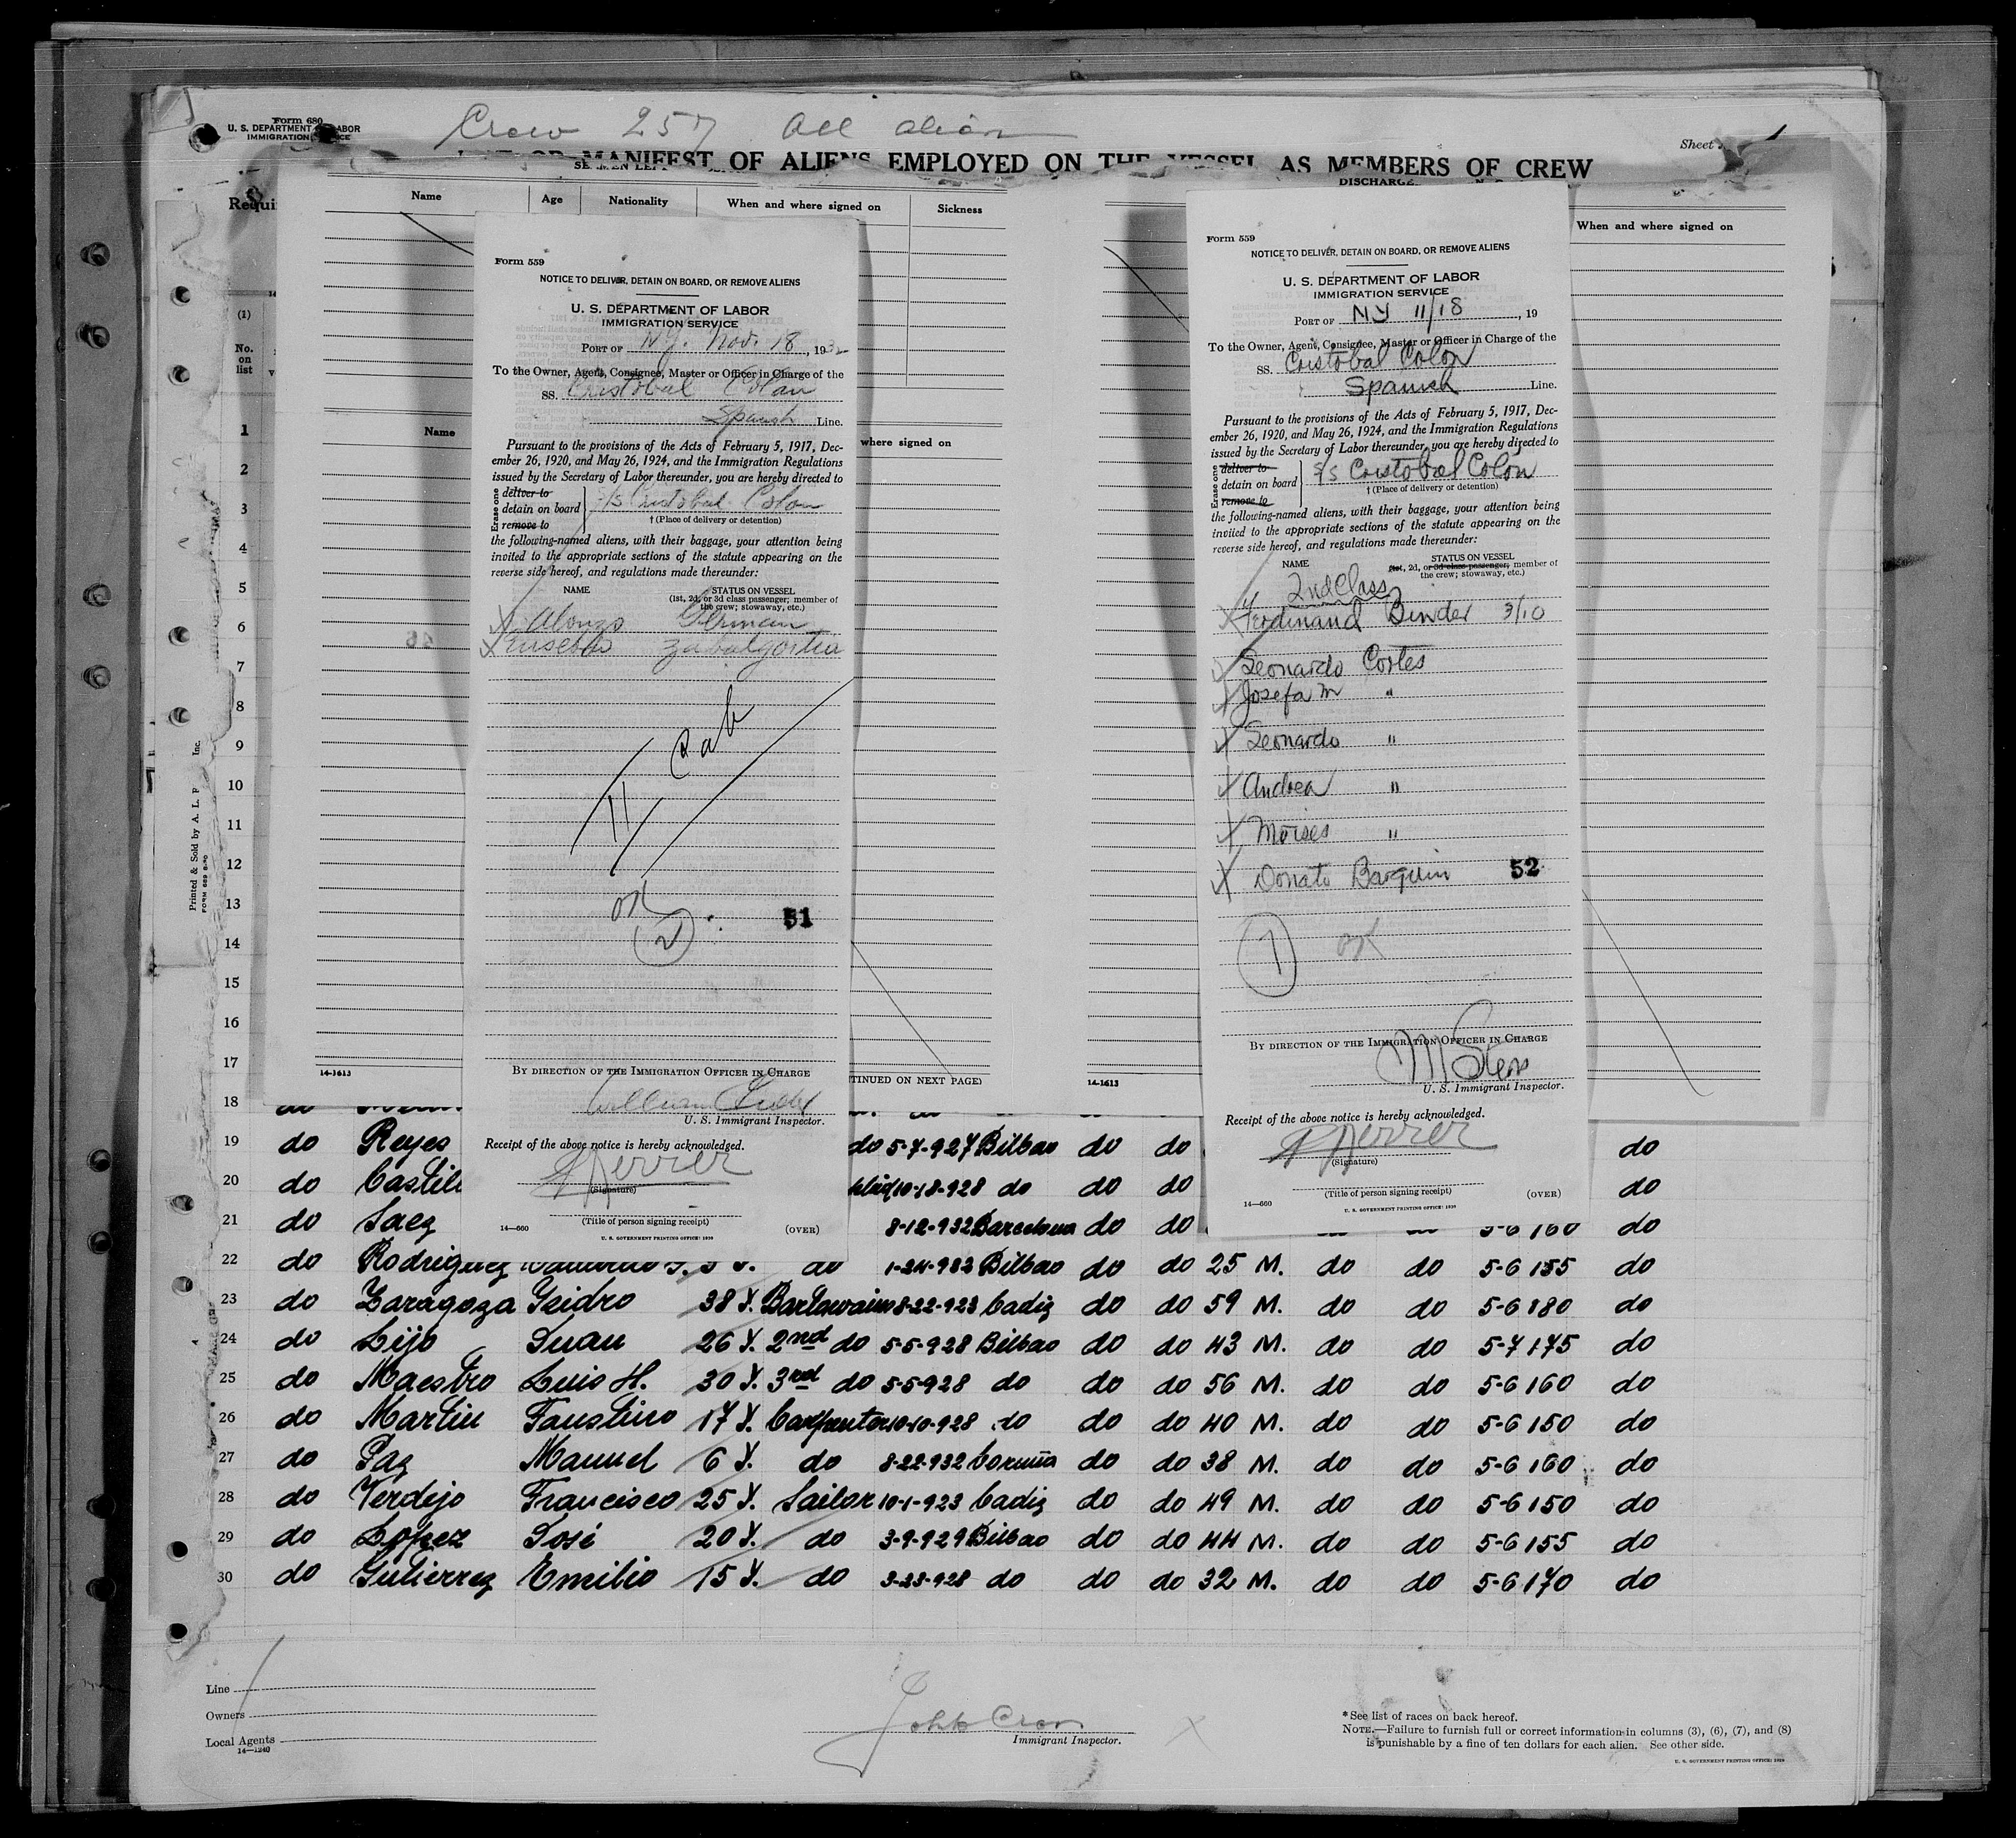 Form 680
U. S. DEPARTMENT OF LABOR
IMMIGRATION SERVICE
Crew 257 all alien
Sheet
MANIFEST OF ALIENS EMPLOYED ON THE VESSEL AS MEMBERS OF CREW
Name Age Nationality When and where signed on Sickness
Name where signed on
14-1613
(CONTINUED ON NEXT PAGE)
Form 559
NOTICE TO DELIVER, DETAIN ON BOARD, OR REMOVE ALIENS
U. S. DEPARTMENT OF LABOR
IMMIGRATION SERVICE
PORT OF N.Y. Nov. 18, 1932
To the Owner, Agent, Consignee, Master or Officer in Charge of the
SS. Cristobal Colon
Spanish Line.
Pursuant to the provisions of the Acts of February 5, 1917, Dec-
ember 26, 1920, and May 26, 1924, and the Immigration Regulations
issued by the Secretary of Labor thereunder, you are hereby directed to
Erase one
deliver to
detain on board S/S Cristobal Colon
remove to
† (Place of delivery or detention)
the following-named aliens, with their baggage, your attention being
invited to the appropriate sections of the statute appearing on the
reverse side hereof, and regulations made thereunder:
NAME STATUS ON VESSEL
(1st, 2d, or 3d class passenger; member of
the crew; stowaway, etc.)
Alonzo German
Eusebio
11 Cab
OK
(2)
51
BY DIRECTION OF THE IMMIGRATION OFFICER IN CHARGE
William
U. S. Immigrant Inspector.
Receipt of the above notice is hereby acknowledged.
(Signature)
(Title of person signing receipt)
14—660 (OVER)
U. S. GOVERNMENT PRINTING OFFICE: 1930
DISCHARGE
When and where signed on
14-1613
Form 559
NOTICE TO DELIVER, DETAIN ON BOARD, OR REMOVE ALIENS
U. S. DEPARTMENT OF LABOR
IMMIGRATION SERVICE
PORT OF NY 11/18, 19
To the Owner, Agent, Consignee, Master or Officer in Charge of the
SS. Cristobal Colon
Spanish Line.
Pursuant to the provisions of the Acts of February 5, 1917, Dec-
ember 26, 1920, and May 26, 1924, and the Immigration Regulations
issued by the Secretary of Labor thereunder, you are hereby directed to
Erase one
deliver to
detain on board S/S Cristobal Colon
remove to
† (Place of delivery or detention)
the following-named aliens, with their baggage, your attention being
invited to the appropriate sections of the statute appearing on the
reverse side hereof, and regulations made thereunder:
NAME STATUS ON VESSEL
1st, 2d, or 3d class passenger; member of
the crew; stowaway, etc.)
2nd Class
Ferdinand Binder 3/10
Leonardo Cortes
Josefa M "
Leonardo "
Andrea "
Moises "
Donato Barquin 52
(7) OK
BY DIRECTION OF THE IMMIGRATION OFFICER IN CHARGE
U. S. Immigrant Inspector.
Receipt of the above notice is hereby acknowledged.
(Signature)
(Title of person signing receipt)
14—660 (OVER)
U. S. GOVERNMENT PRINTING OFFICE: 1930
(1)
No.
on
list
1
2
3
4
5
6
7
8
9
10
11
12
13
14
15
16
17
18
19 do Reyes do 5-7-927 Bilbao do do do
20 do 10-18-928 do do do do
21 do Saez 8-12-932 Barcelona do do 5-6 160 do
22 do Rodriguez do 1-24-932 Bilbao do do 25 M. do do 5-6 155 do
23 do Zaragoza Isidro 38 Y. 8-22-923 Cadiz do do 59 M. do do 5-6 180 do
24 do Lijo Juan 26 Y. 2nd do 5-5-928 Bilbao do do 43 M. do do 5-7 175 do
25 do Maestro Luis H. 30 Y. 3rd do 5-5-928 do do do 56 M. do do 5-6 160 do
26 do Martin Faustino 17 Y. Carpenter 10-10-928 do do do 40 M. do do 5-6 150 do
27 do Paz Manuel 6 Y. do 8-22-932 Coruña do do 38 M. do do 5-6 160 do
28 do Verdejo Francisco 25 Y. Sailor 10-1-923 Cadiz do do 49 M. do do 5-6 150 do
29 do Lopez José 20 Y. do 3-9-929 Bilbao do do 44 M. do do 5-6 155 do
30 do Gutierrez Emilio 15 Y. do 3-23-928 do do do 32 M. do do 5-6 170 do
Printed & Sold by A. L. P Inc.
Line
Owners
Local Agents
14—1240
John
Immigrant Inspector.
* See list of races on back hereof.
NOTE.—Failure to furnish full or correct information in columns (3), (6), (7), and (8)
is punishable by a fine of ten dollars for each alien. See other side.